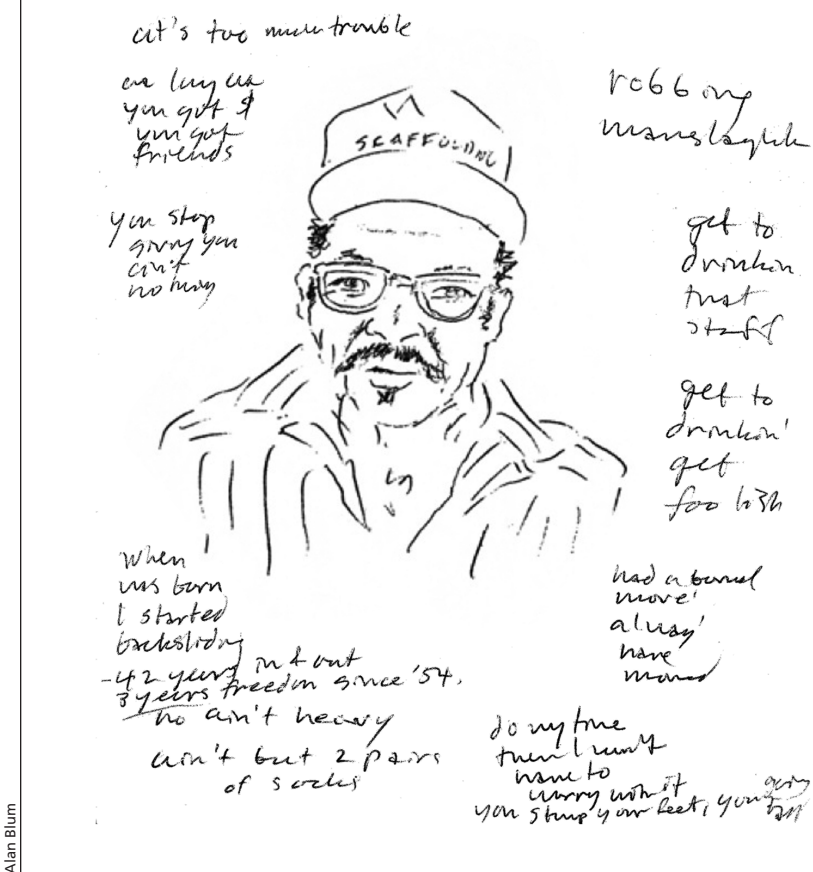 it's too much trouble
as long as
you got $
you got
friends
you stop
giving you
ain't
no
SCAFFOLDING
robbing
manslaughter
get to
drinkin
that
stuff
get to
drinkin'
get
foolish
When
was born
I started
backsliding
-42 years in & out
3 years freedom since '54.
no ain't heavy
ain't but 2 pairs
of socks
had a
move
always
have
moved
do my time
then I won't
have to
worry
you stump your feet, you going
fall
Alan Blum